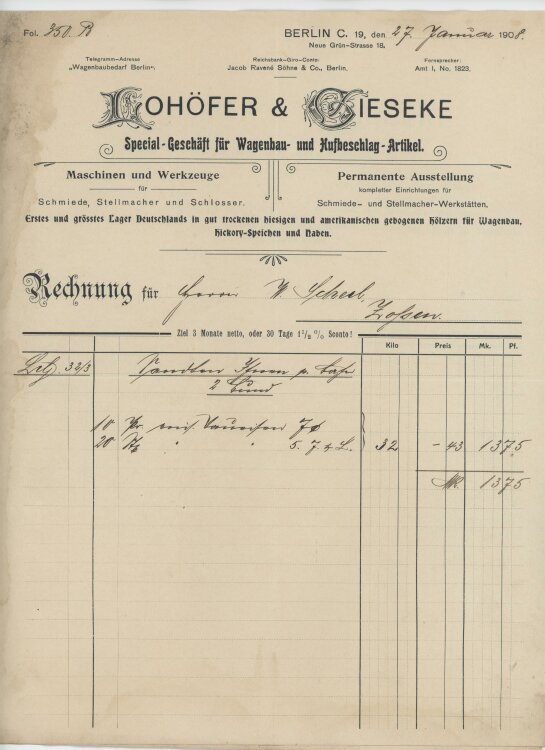 Fol. 350. B
BERLIN C. 19, den 27. Januar 1908.
Neue Grün-Strasse 18.
Telegramm-Adresse
„Wagenbaubedarf Berlin“.
Reichsbank-Giro-Conto:
Jacob Ravené Söhne & Co., Berlin.
Fernsprecher:
Amt I, No. 1823.
LOHÖFER & GIESEKE
Special-Geschäft für Wagenbau- und Hufbeschlag-Artikel.
Maschinen und Werkzeuge
für
Schmiede, Stellmacher und Schlosser.
Permanente Ausstellung
kompletter Einrichtungen für
Schmiede- und Stellmacher-Werkstätten.
Erstes und grösstes Lager Deutschlands in gut trockenen hiesigen und amerikanischen gebogenen Hölzern für Wagenbau,
Hickory-Speichen und Naben.
Rechnung für Herrn W. Scherl,
Zossen.
Ziel 3 Monate netto, oder 30 Tage 1½ % Sconto!
Kilo Preis Mk. Pf.
32/3 Sandten Ihnen p. Bahn
2 Bund
10
20 32 - 43 13 75
Mk. 13 75